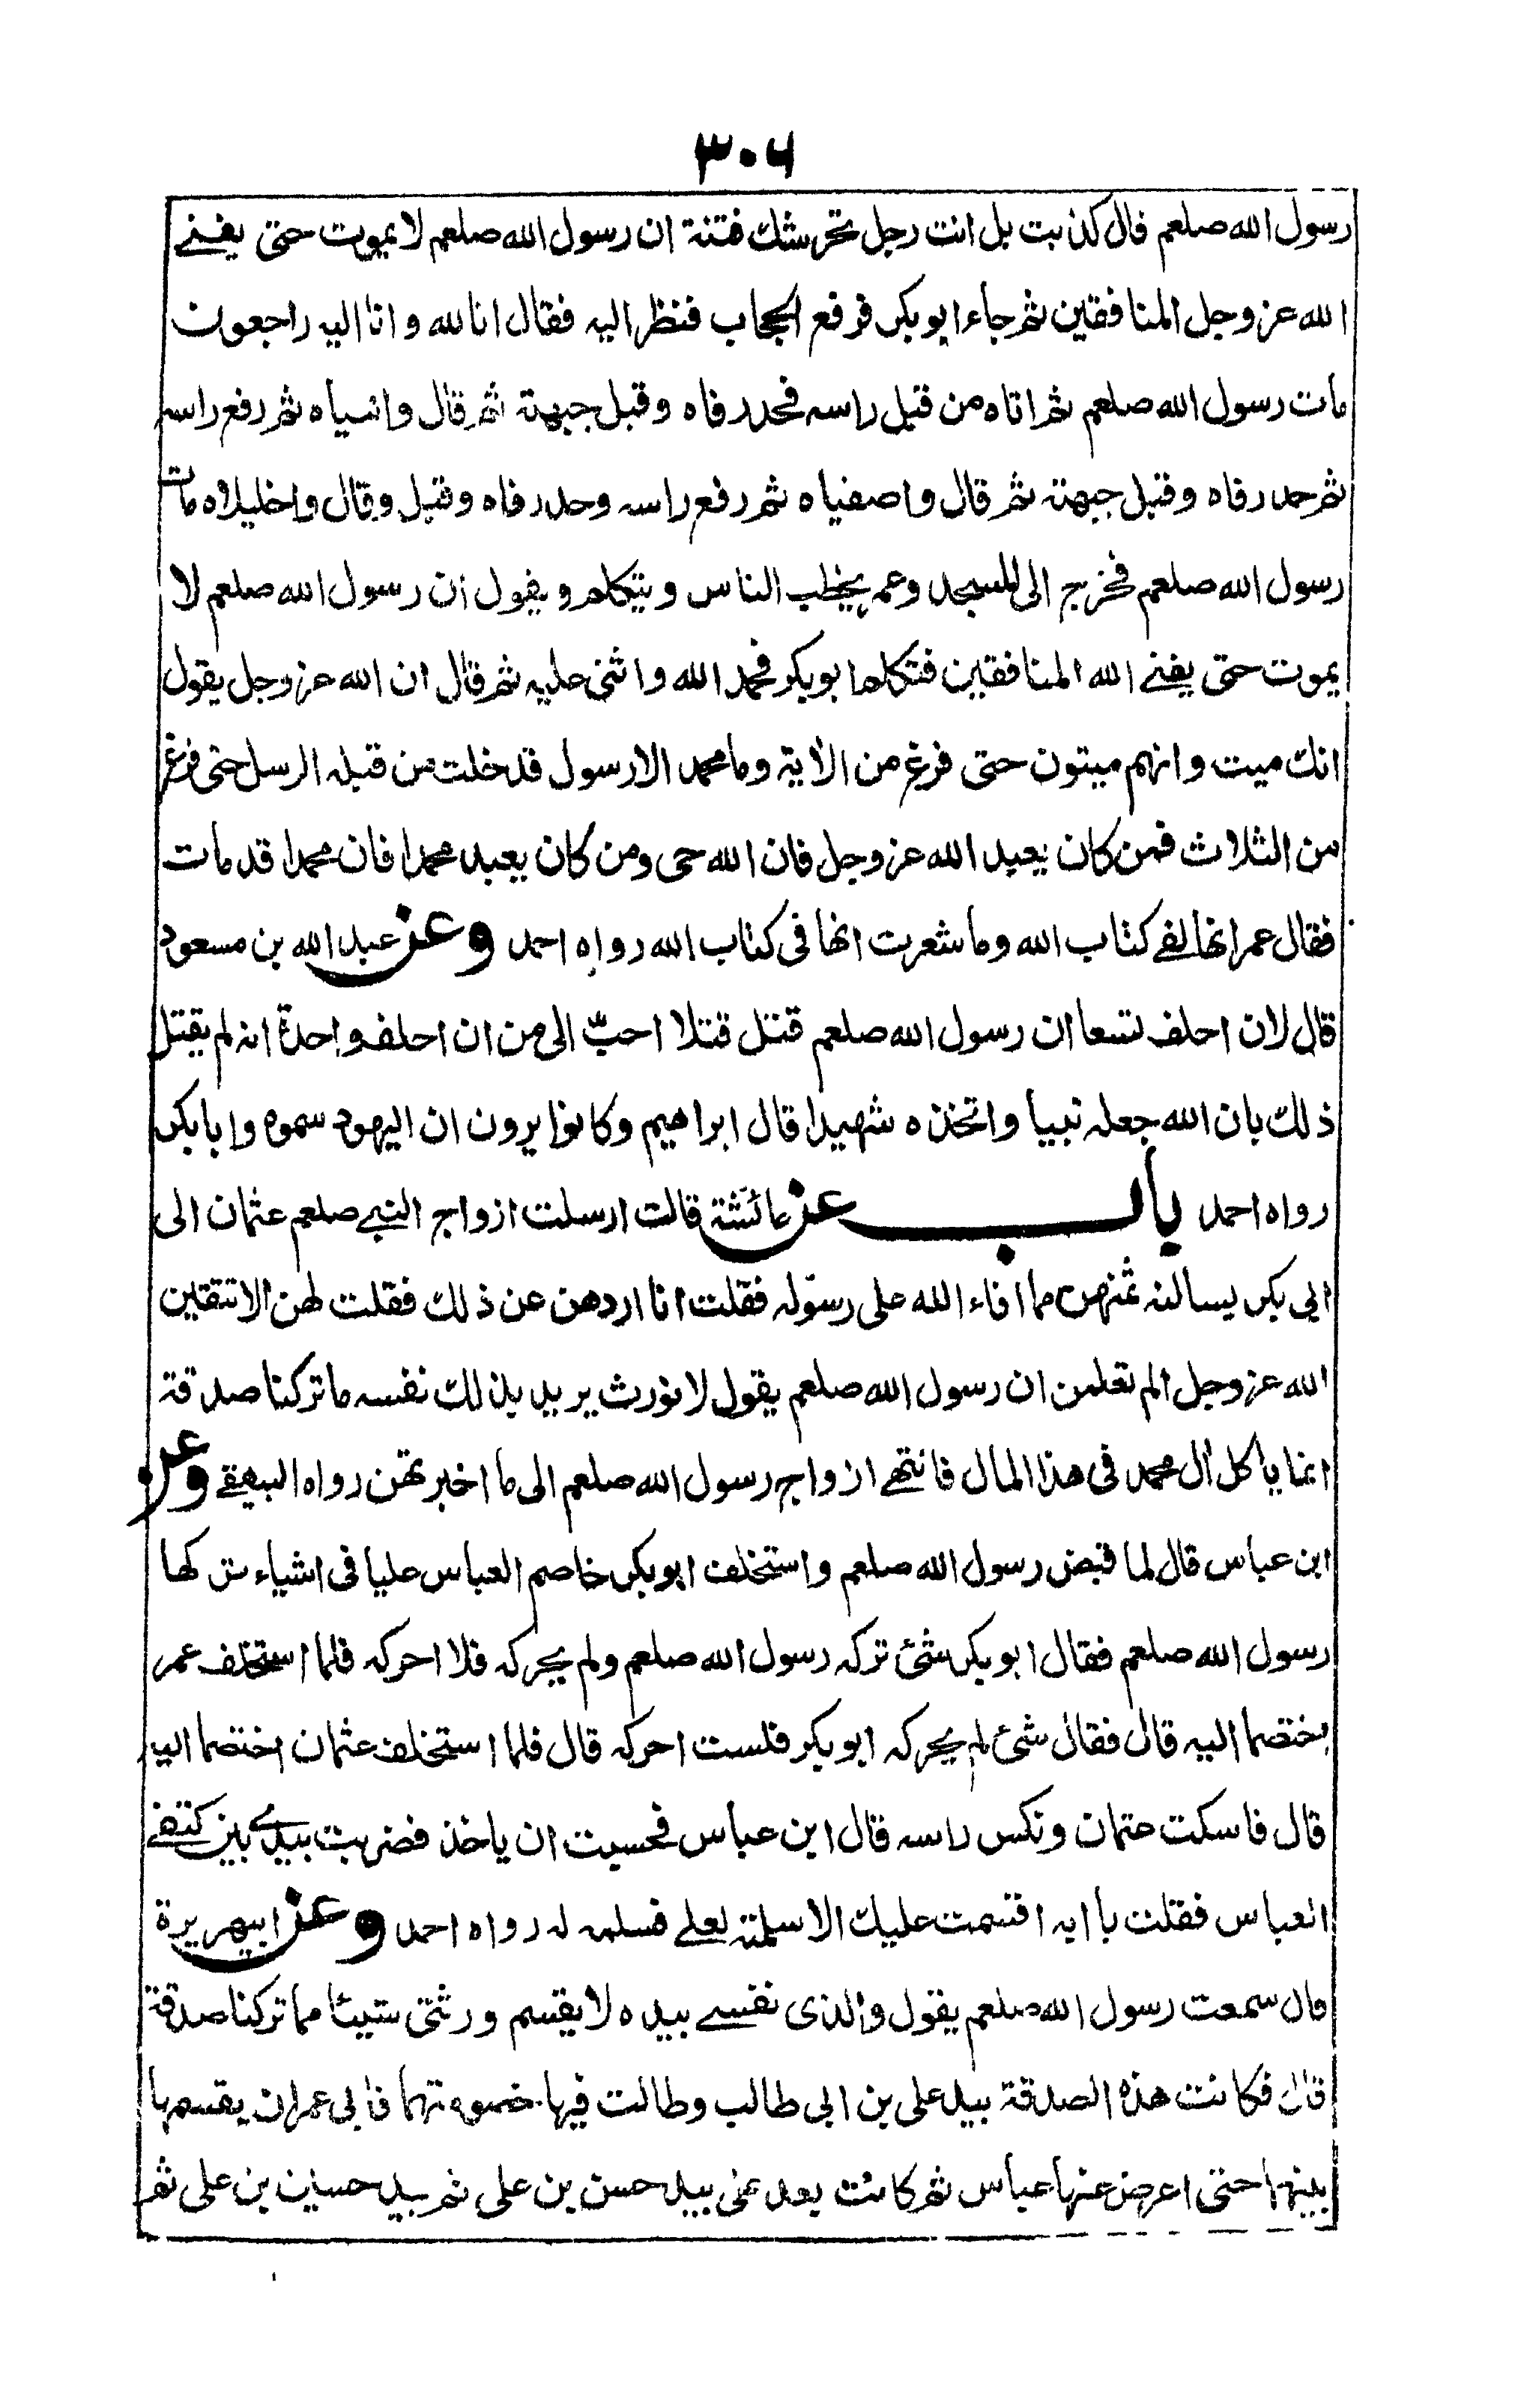 ٣٠٦
رسول الله صلعم قال كذبت بل انت رجل تحوشك فتنة ان رسول الله صلعم لا يموت حتى يفنے
الله عز وجل المنافقين ثم جاء ابو بكر فرفع الحجاب فنظر اليه فقال انا لله و انا اليه راجعون
مات رسول الله صلعم ثم اتاه من قبل راسه فحدر فاه وقبل جبهته ثم قال وانبياه ثم رفع راسه
ثم حدر فاه وقبل جبهته ثم قال واصفياه ثم رفع راسه وحدر فاه وقبل وقال واخليلاه مات
رسول الله صلعم فخرج الى المسجد وعمر يخطب الناس ويتكلم ويقول ان رسول الله صلعم لا
يموت حتى يفنے الله المنافقين فتكلم ابو بكر فحمد الله واثنى عليه ثم قال ان الله عز وجل يقول
انك ميت وانهم ميتون حتى فرغ من الاٰية وما محمد الا رسول قد خلت من قبله الرسل حتى فرغ
من الثلاث فمن كان يعبد الله عز وجل فان الله حى ومن كان يعبد محمدا فان محمدا قد مات
فقال عمر انها لفے كتاب الله وما شعرت انها فى كتاب الله رواه احمد وعن عبد الله بن مسعود
قال لان احلف تسعا ان رسول الله صلعم قتل قتلا احبّ الى من ان احلف واحدة انه لم يقتل
ذلك بان الله جعله نبيا واتخذه شهيدا قال ابراهيم وكانوا يرون ان اليهود سموه وابا بكر
رواه احمد باب عن عائشة قالت ارسلت ازواج النبے صلعم عثمان الى
ابى بكر يسالنه ثمنهن مما افاء الله على رسوله فقلت انا اردهن عن ذلك فقلت لهن الا تتقين
الله عز وجل الم تعلمن ان رسول الله صلعم يقول لا نورث يريد بذلك نفسه ما تركنا صدقة
انما ياكل اٰل محمد فى هذا المال فانتهے ازواج رسول الله صلعم الى ما اخبرتهن رواه البيهقے وعن
ابن عباس قال لما قبض رسول الله صلعم واستخلف ابو بكر خاصم العباس عليا فى اشياء تركها
رسول الله صلعم فقال ابو بكر شئ تركه رسول الله صلعم ولم يحركه فلا احركه فلما استخلف عمر
اختصما اليه قال فقال شئ لم يحركه ابو بكر فلست احركه قال فلما استخلف عثمان اختصما اليه
قال فاسكت عثمان ونكس راسه قال ابن عباس فحسبت ان ياخذ فضربت بيدے بين كتفے
العباس فقلت يا ابه اقسمت عليك الا سلمته لعلے فسلمه له رواه احمد وعن ابيهريرة
قال سمعت رسول الله صلعم يقول والذى نفسے بيده لا يقسم ورثتى شيئا مما تركنا صدقة
قال فكانت هذه الصدقة بيد على بن ابى طالب وطالت فيها خصومتهما فابى عمر ان يقسمها
بينهما حتى اعرض عنها عباس ثم كانت بعد على بيد حسن بن على ثم بيد حسين بن على ثم